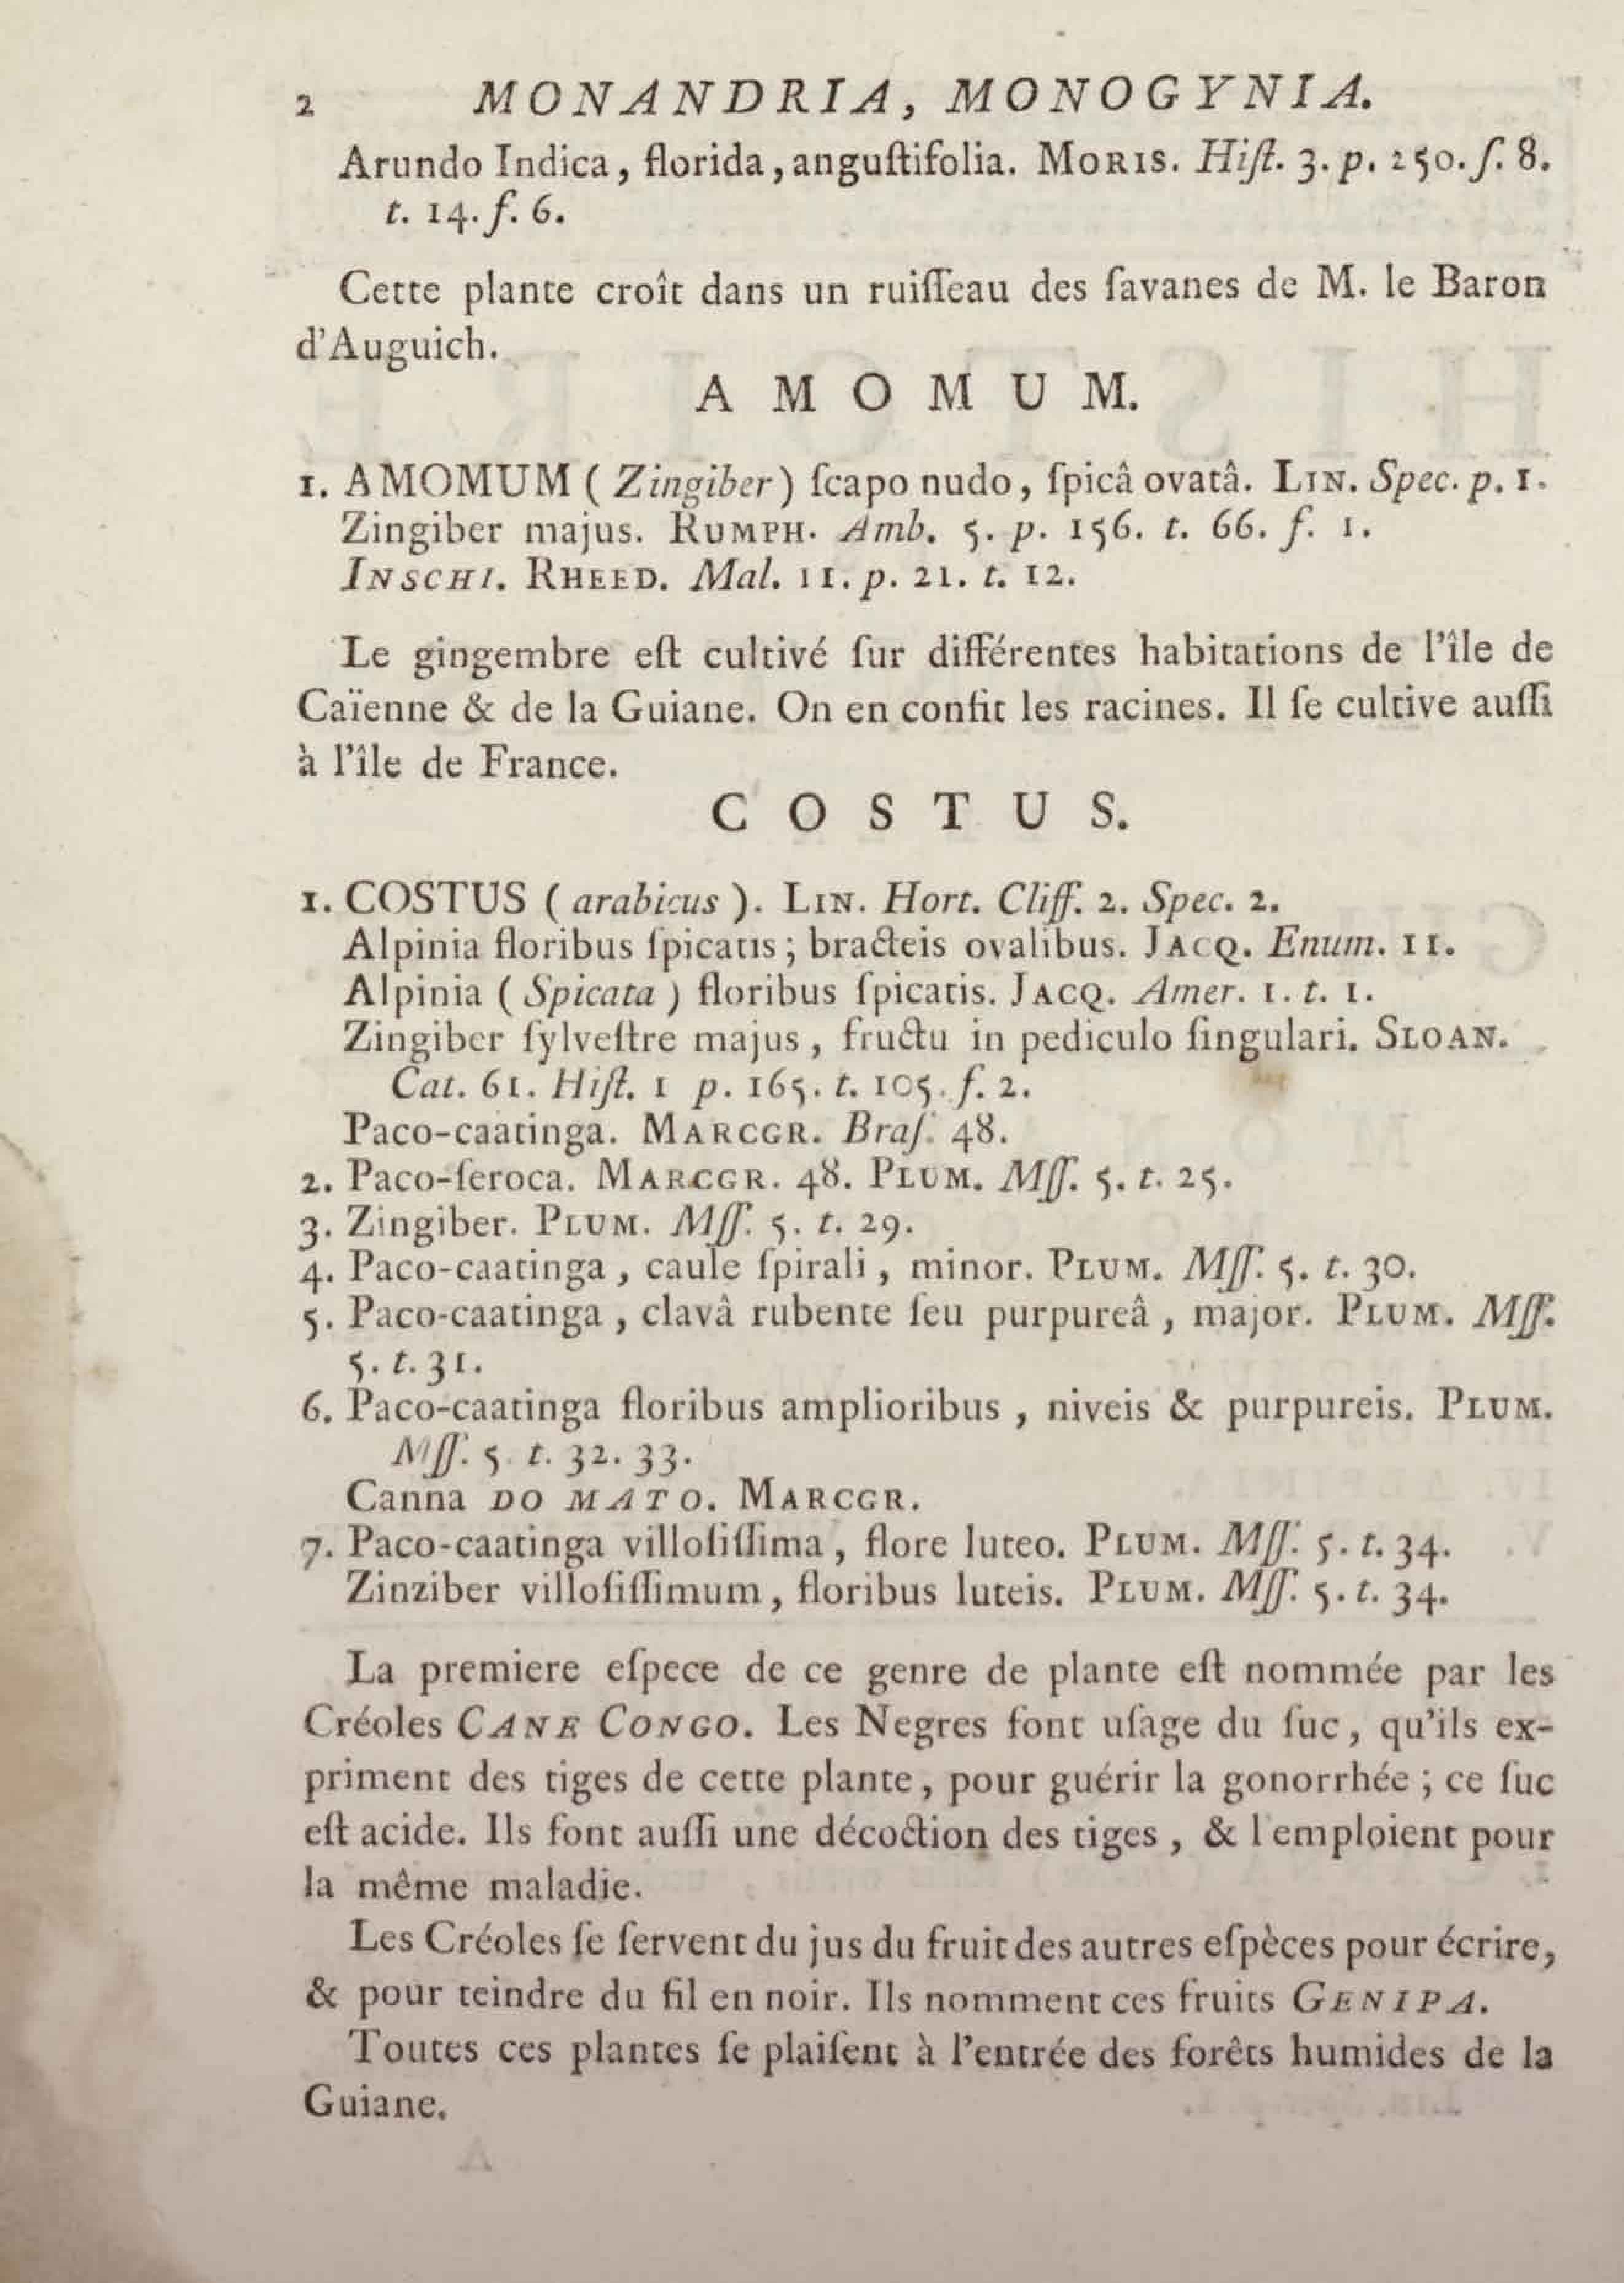 2 MONANDRIA, MONOGYNIA.
Arundo Indica, florida, anguſtifolia. MORIS. Hiſt. 3. p. 250. ſ. 8.
t. 14. f. 6.
Cette plante croît dans un ruiſſeau des ſavanes de M. le Baron
d'Auguich.
AMOMUM.
1. AMOMUM ( Zingiber ) ſcapo nudo, ſpicâ ovatâ. LIN. Spec. p. 1.
Zingiber majus. RUMPH. Amb. 5. p. 156. t. 66. f. 1.
INSCHI. RHEED. Mal. 11. p. 21. t. 12.
Le gingembre eſt cultivé ſur différentes habitations de l'île de
Caïenne & de la Guiane. On en confit les racines. Il ſe cultive auſſi
à l'île de France.
COSTUS.
1. COSTUS ( arabicus ). LIN. Hort. Cliff. 2. Spec. 2.
Alpinia floribus ſpicatis ; bracteis ovalibus. JACQ. Enum. 11.
Alpinia ( Spicata ) floribus ſpicatis. JACQ. Amer. 1. t. 1.
Zingiber ſylveſtre majus , fructu in pediculo ſingulari. SLOAN.
Cat. 61. Hiſt. 1 p. 165. t. 105. f. 2.
Paco-caatinga. MARCGR. Braſ. 48.
2. Paco-ſeroca. MARCGR. 48. PLUM. Mſſ. 5. t. 25.
3. Zingiber. PLUM. Mſſ. 5. t. 29.
4. Paco-caatinga , caule ſpirali , minor. PLUM. Mſſ. 5. t. 30.
5. Paco-caatinga , clavâ rubente ſeu purpureâ , major. PLUM. Mſſ.
5. t. 31.
6. Paco-caatinga floribus amplioribus , niveis & purpureis. PLUM.
Mſſ. 5. t. 32. 33.
Canna DO MATO. MARCGR.
7. Paco-caatinga villoſiſſima , flore luteo. PLUM. Mſſ. 5. t. 34.
Zinziber villoſiſſimum , floribus luteis. PLUM. Mſſ. 5. t. 34.
La premiere eſpece de ce genre de plante eſt nommée par les
Créoles CANE CONGO. Les Negres font uſage du ſuc , qu'ils ex-
priment des tiges de cette plante , pour guérir la gonorrhée ; ce ſuc
eſt acide. Ils font auſſi une décoction des tiges , & l'emploient pour
la même maladie.
Les Créoles ſe ſervent du jus du fruit des autres eſpèces pour écrire,
& pour teindre du fil en noir. Ils nomment ces fruits GENIPA.
Toutes ces plantes ſe plaiſent à l'entrée des forêts humides de la
Guiane.